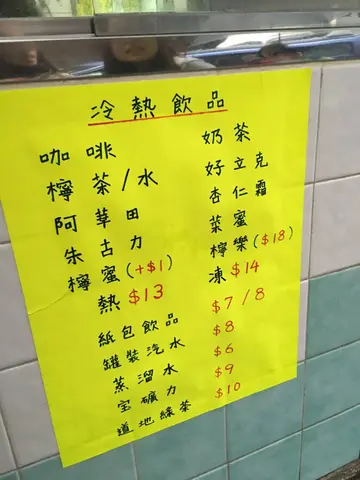 冷熱飲品
咖啡 奶茶
檸茶/水 好立克
阿華田 杏仁霜
朱古力 菜蜜
檸蜜(+$1) 檸樂($18)
熱$13 凍$14
紙包飲品 $7/8
罐裝汽水 $8
蒸溜水 $6
宝礦力 $9
道地綠茶 $10